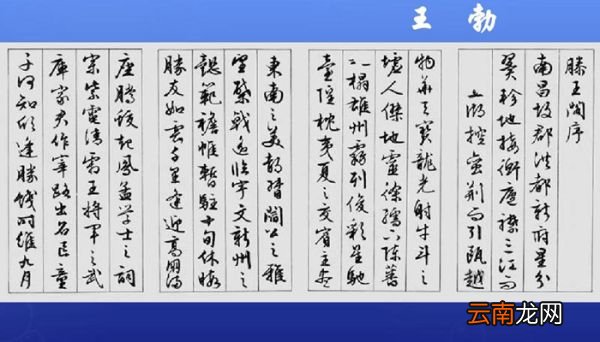 王勃
滕王閣序
南昌故郡洪都新府星分
翼軫地接衡廬襟三江而
五湖控蠻荊而引甌越
物華天寶龍光射牛斗之
墟人傑地靈徐孺下陳蕃
之榻雄州霧列俊彩星馳
臺隍枕夷夏之交賓主盡
東南之美都督閻公之雅
望棨戟遙臨宇文新州之
懿範襜帷暫駐十旬休暇
勝友如雲千里逢迎高朋滿
座騰蛟起鳳孟學士之詞
宗紫電清霜王將軍之武
庫家君作宰路出名區童
子何知躬逢勝餞時維九月
云南龙网